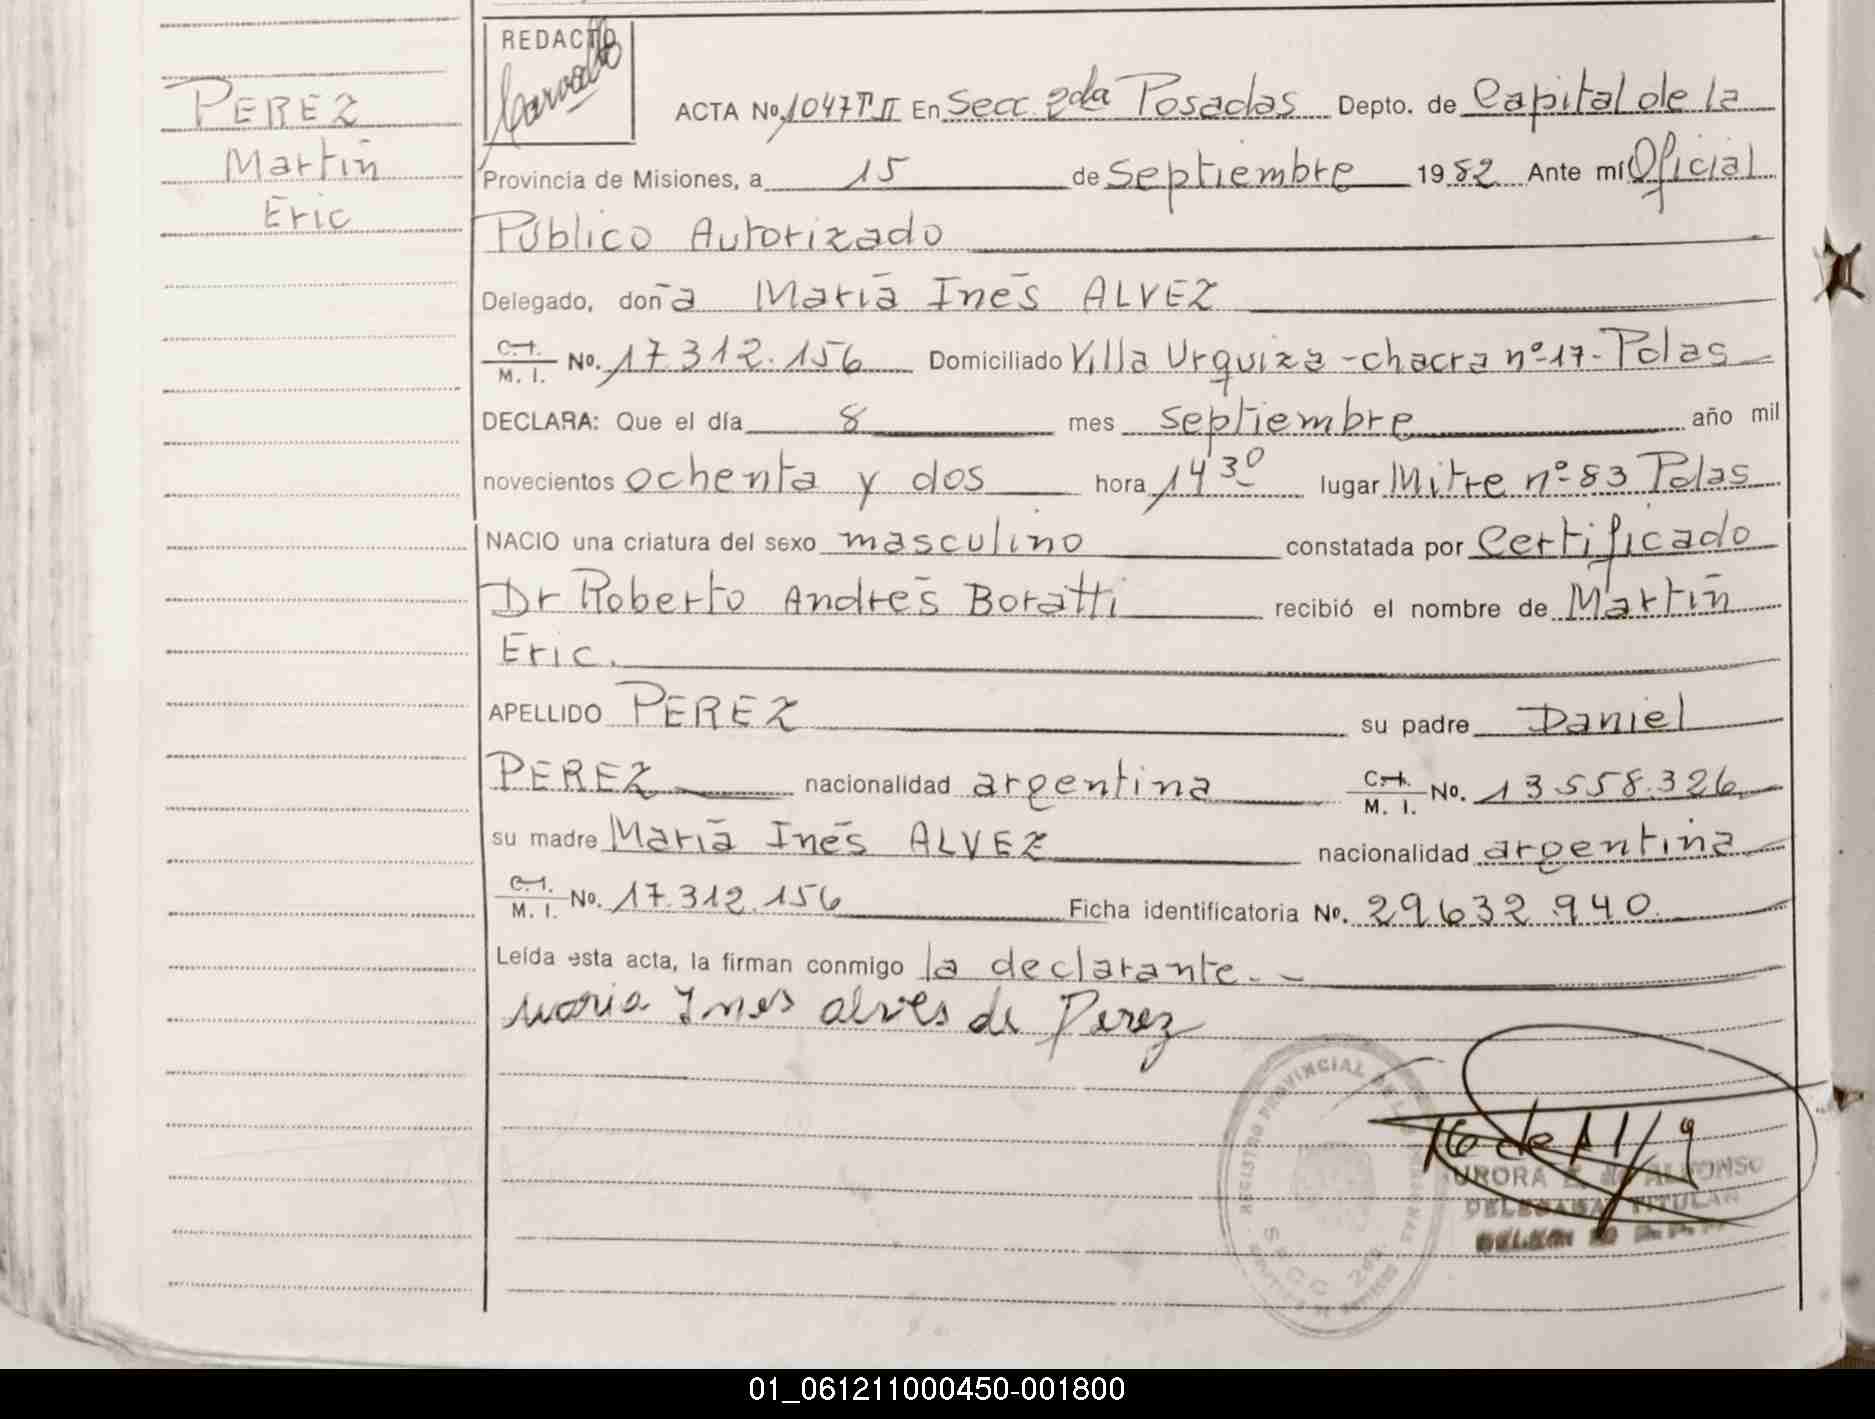 PEREZ
Martín
Eric
REDACTO
Carvallo
ACTA No. 1047 T II En Secc. 2da Posadas Depto. de Capital de la
Provincia de Misiones, a 15 de septiembre 1982 Ante mí Oficial
Público Autorizado
Delegado, doña María Inés ALVEZ
C.I. M. I. No. 17.312.156 Domiciliado Villa Urquiza - chacra nº 17 - Pdas
DECLARA: Que el día 8 mes septiembre año mil
novecientos ochenta y dos hora 14 30 lugar Mitre nº 83 Pdas
NACIO una criatura del sexo masculino constatada por certificado
Dr Roberto Andrés Boratti recibió el nombre de Martín
Eric.
APELLIDO PEREZ su padre Daniel
PEREZ nacionalidad argentina C.I. M. I. No. 13.558.326
su madre María Inés ALVEZ nacionalidad argentina
C.I. M. I. No. 17.312.156 Ficha identificatoria No. 29632940
Leída esta acta, la firman conmigo la declarante. -
Maria Ines Alves de Perez
REGISTRO PROVINCIAL DE LAS PERSONAS
SECC 2da
DELEGADA TITULAR
01_061211000450-001800